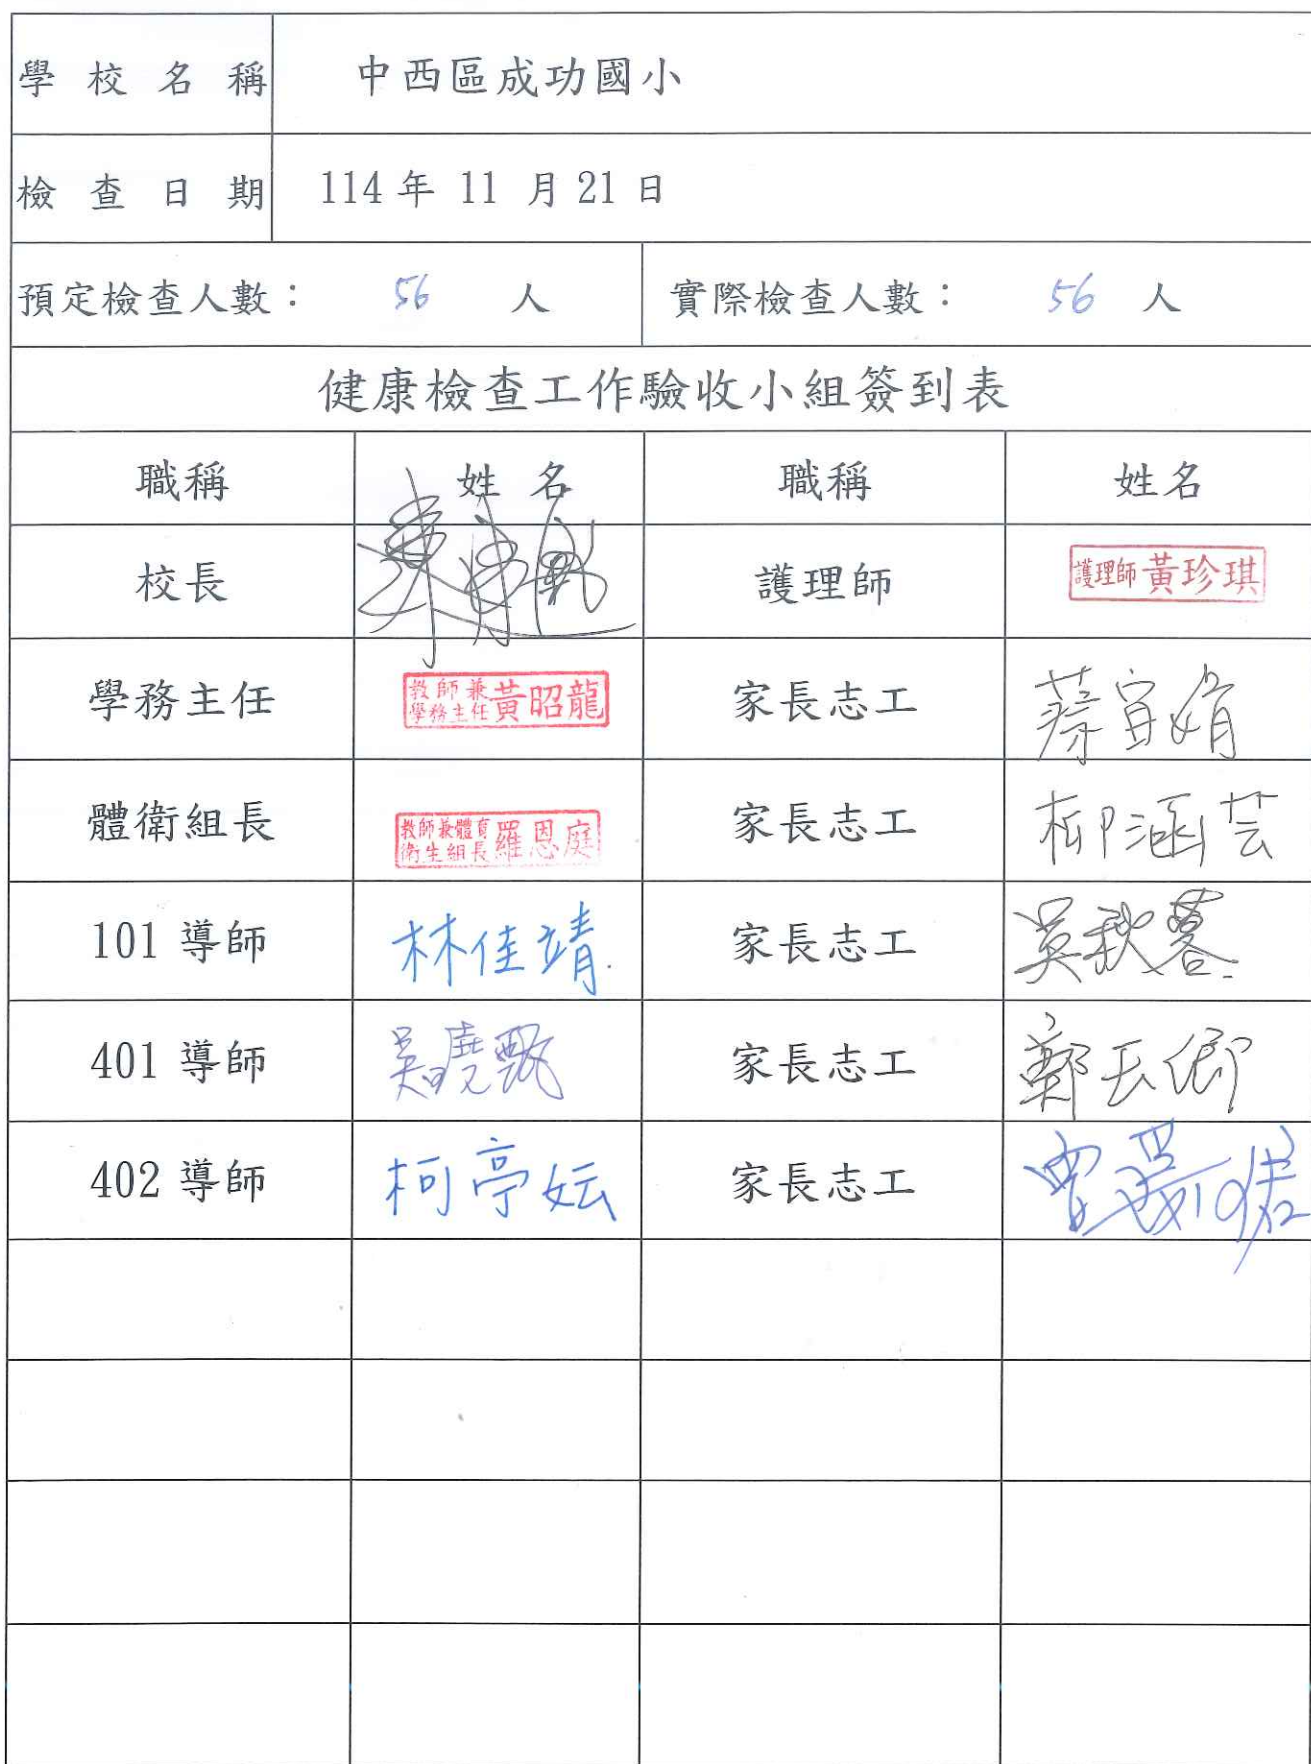 學校名稱 中西區成功國小
檢查日期 114年 11 月21日
預定檢查人數： 56 人 實際檢查人數： 56 人
健康檢查工作驗收小組簽到表
職稱 姓名 職稱 姓名
校長 護理師 護理師 黃珍琪
學務主任 教師兼學務主任 黃昭龍 家長志工 蔡宜娟
體衛組長 教師兼體育衛生組長 羅恩庭 家長志工 柳涵芸
101 導師 林佳靖 家長志工 吳秋蓉
401 導師 吳曉甄 家長志工 鄭玉卿
402 導師 柯亭妘 家長志工